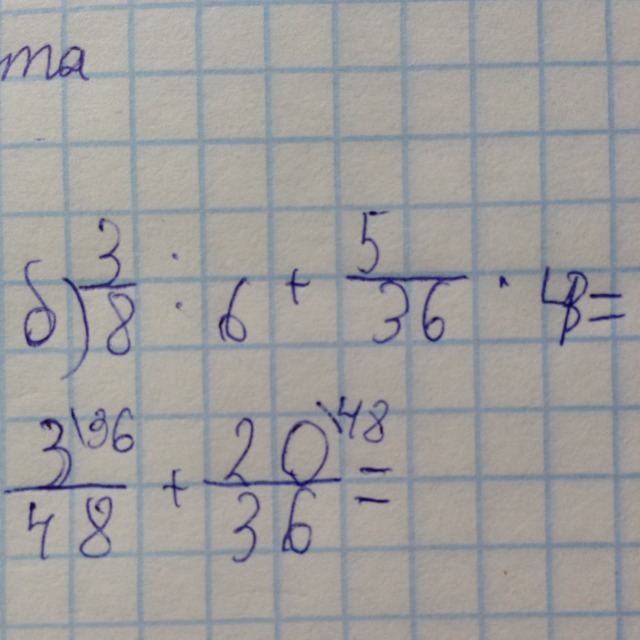 та
б) 3/8 : 6 + 5/36 · 4 =
3\36/48 + 20\48/36 =